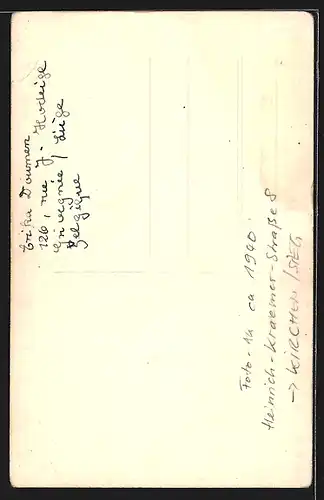 Erika Doumen
126, rue J. Hodeige
Grivegnée / Liège
Belgique
Foto-14 ca 1940.
Heinrich-Kraemer-Straße 8
→ KIRCHEN/SIEG